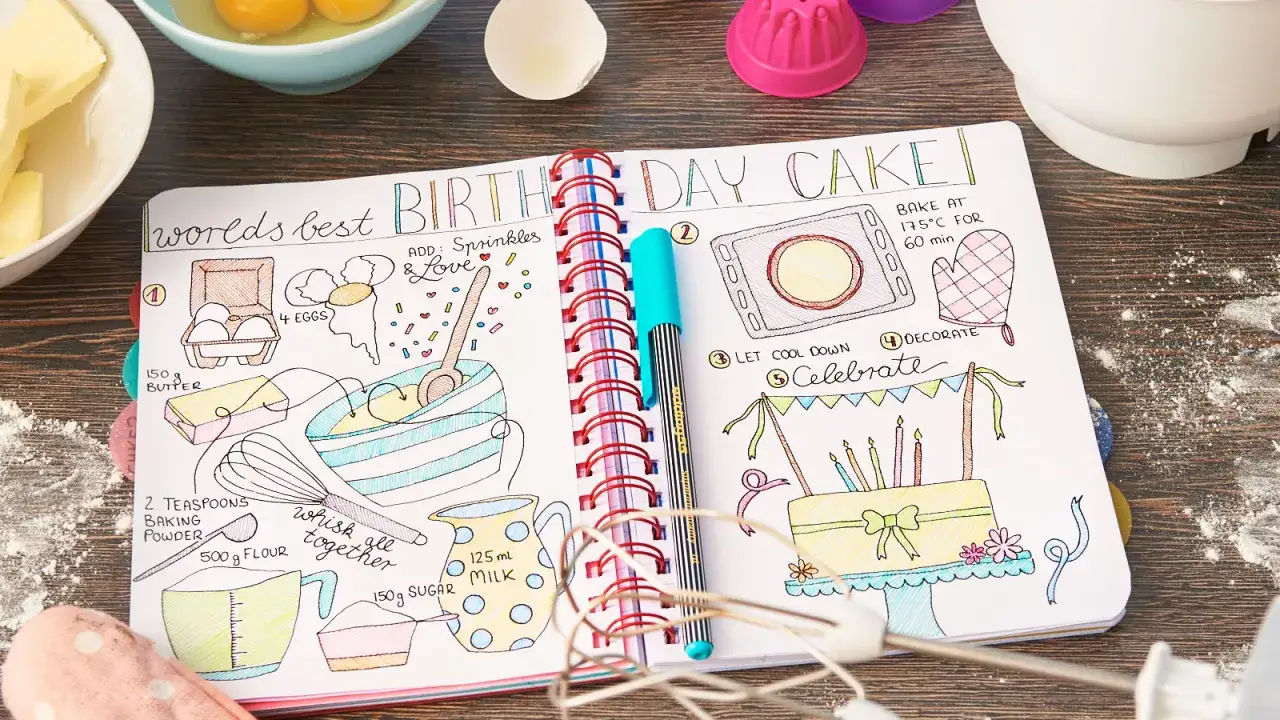 worlds best BIRTHDAY CAKE!
ADD: Sprinkles
& Love
1
4 EGGS
150 g
BUTTER
2 TEASPOONS
BAKING
POWDER
whisk all
together
500 g FLOUR
150 g SUGAR
125 ml
MILK
2
BAKE AT
175°C FOR
60 min
3 LET COOL DOWN
4 DECORATE
5 Celebrate